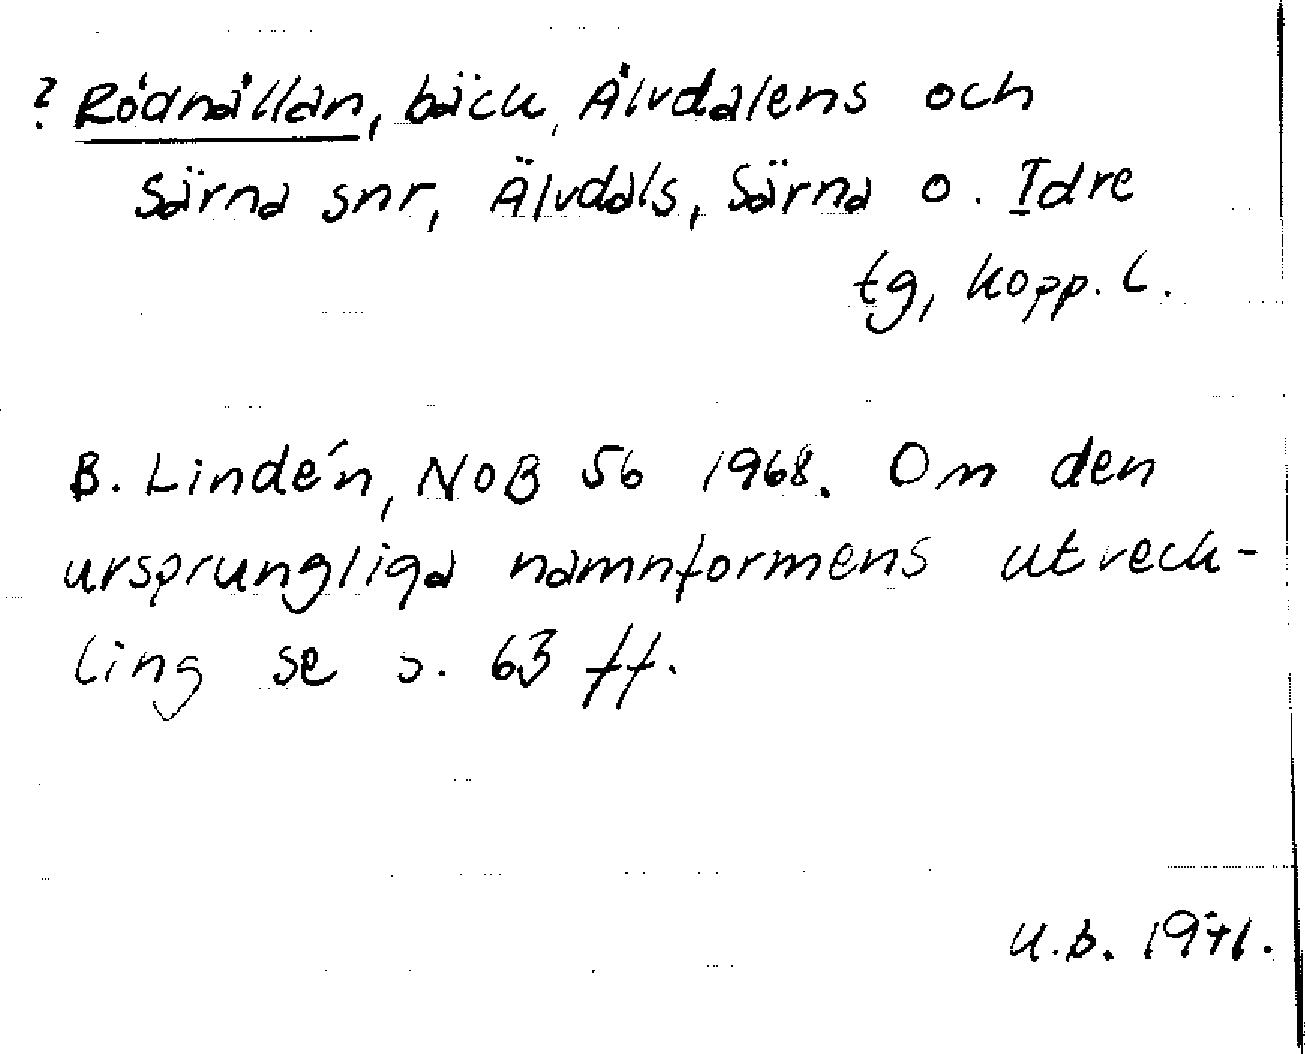 ? Rödnållan, bäck, Älvdalens och
Särna snr, Älvdals, Särna o. Idre
tg, Kopp. L.
B. Lindén, NoB 56 1968. Om den
ursprungliga namnformens utveck-
ling se s. 63 ff.
U.B. 1971.